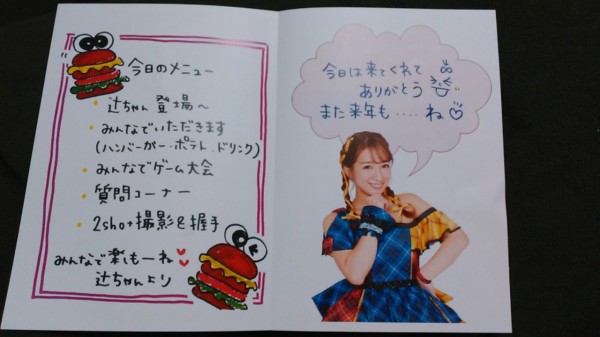 今日のメニュー
・辻ちゃん登場〜
・みんなでいただきます
(ハンバーガー・ポテト・ドリンク)
・みんなでゲーム大会
・質問コーナー
・2shot撮影&握手
みんなで楽しもーね
辻ちゃんより
今日は来てくれて
ありがとう
また来年も....ね♡